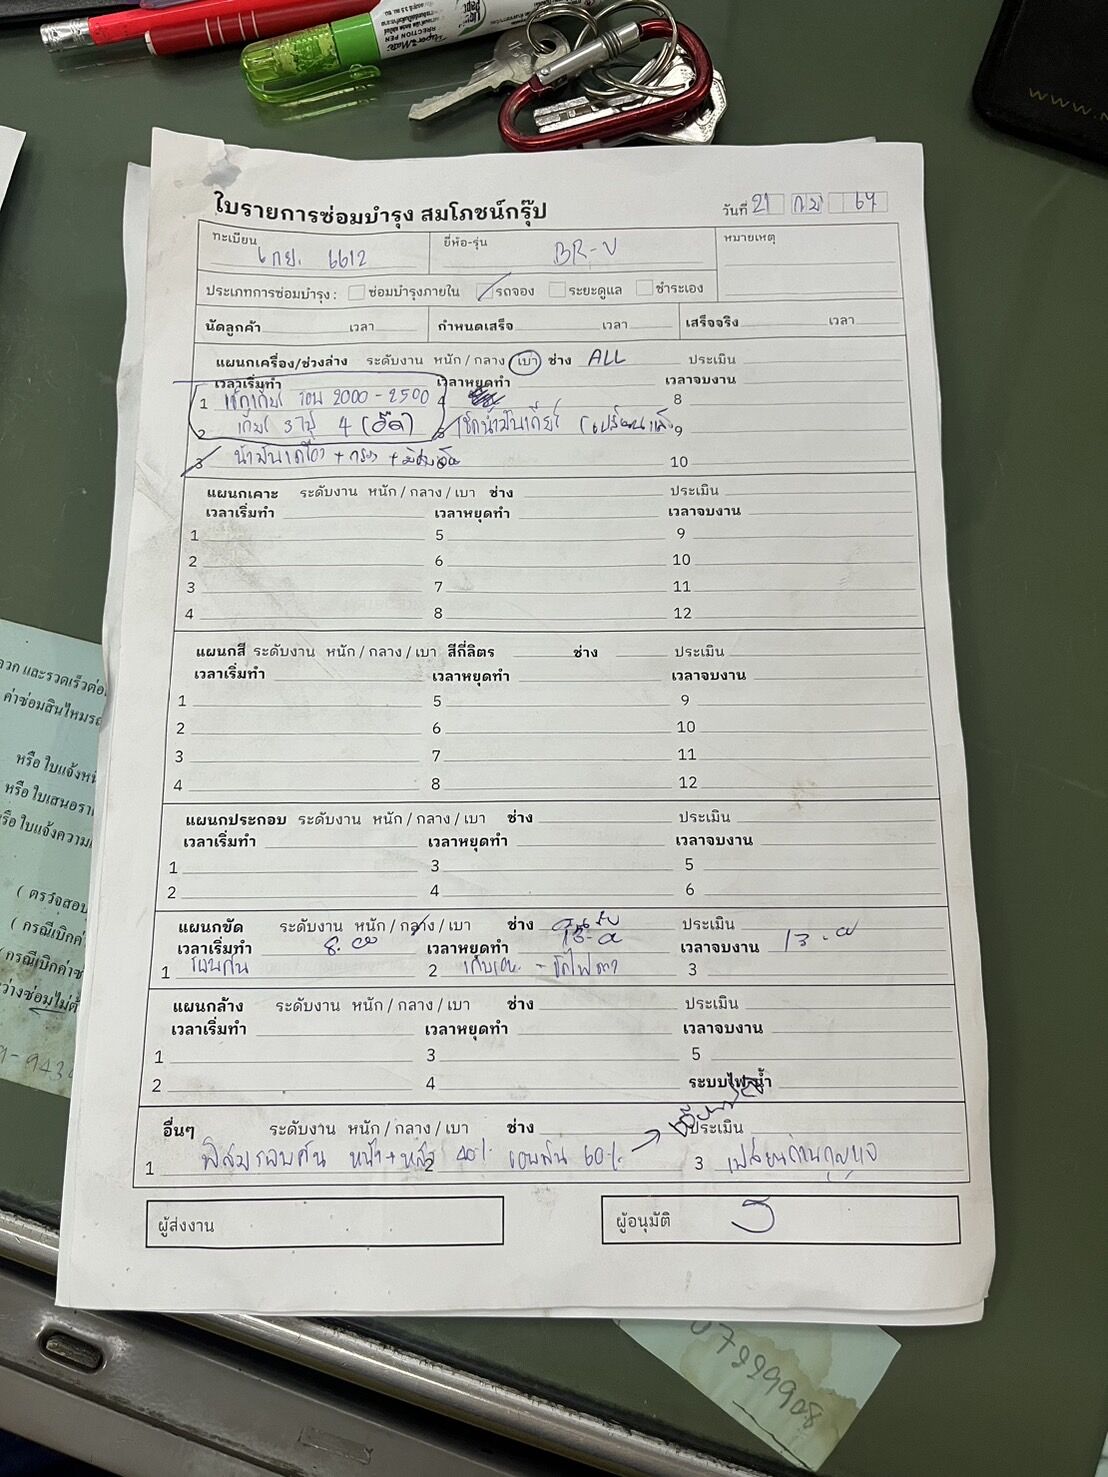 ใบรายการซ่อมบำรุง สมโภชน์กรุ๊ป
วันที่ 21 กพ 67
ทะเบียน 6612
ยี่ห้อ-รุ่น BR-V
หมายเหตุ
ประเภทการซ่อมบำรุง : ซ่อมบำรุงภายใน รถจอง ระยะดูแล ชำระเอง
นัดลูกค้า เวลา กำหนดเสร็จ เวลา เสร็จจริง เวลา
แผนกเครื่อง/ช่วงล่าง ระดับงาน หนัก / กลาง / เบา ช่าง ALL ประเมิน
เวลาเริ่มทำ เวลาหยุดทำ เวลาจบงาน
1 เช็กเกียร์ รอบ 2000 - 2500 4 8
2 เกียร์ 3 ไป 4 (อืด) 5 เช็กน้ำมันเกียร์ 9
3 น้ำมันเครื่อง + กรอง + 10
แผนกเคาะ ระดับงาน หนัก / กลาง / เบา ช่าง ประเมิน
เวลาเริ่มทำ เวลาหยุดทำ เวลาจบงาน
1 5 9
2 6 10
3 7 11
4 8 12
แผนกสี ระดับงาน หนัก / กลาง / เบา สีกี่ลิตร ช่าง ประเมิน
เวลาเริ่มทำ เวลาหยุดทำ เวลาจบงาน
1 5 9
2 6 10
3 7 11
4 8 12
แผนกประกอบ ระดับงาน หนัก / กลาง / เบา ช่าง ประเมิน
เวลาเริ่มทำ เวลาหยุดทำ เวลาจบงาน
1 3 5
2 4 6
แผนกขัด ระดับงาน หนัก / กลาง / เบา ช่าง ประเมิน
เวลาเริ่มทำ 8.00 เวลาหยุดทำ เวลาจบงาน 13.00
1 2 3
แผนกล้าง ระดับงาน หนัก / กลาง / เบา ช่าง ประเมิน
เวลาเริ่มทำ เวลาหยุดทำ เวลาจบงาน
1 3 5
2 4 ระบบไฟ,น้ำ
อื่นๆ ระดับงาน หนัก / กลาง / เบา ช่าง ประเมิน
1 ฟิล์มรอบคัน หน้า + หลัง 2 40% รอบคัน 60% 3 เปลี่ยนถ่านกุญแจ
ผู้ส่งงาน ผู้อนุมัติ
และรวดเร็วต่อ
ค่าซ่อมสินไหมรถ
หรือ ใบแจ้งหนี้
หรือ ใบเสนอรา
หรือ ใบแจ้งความ
( ตรวจสอบ
( กรณีเบิกค่า
กรณีเบิกค่าซ่
ว่างซ่อมไม่ต้